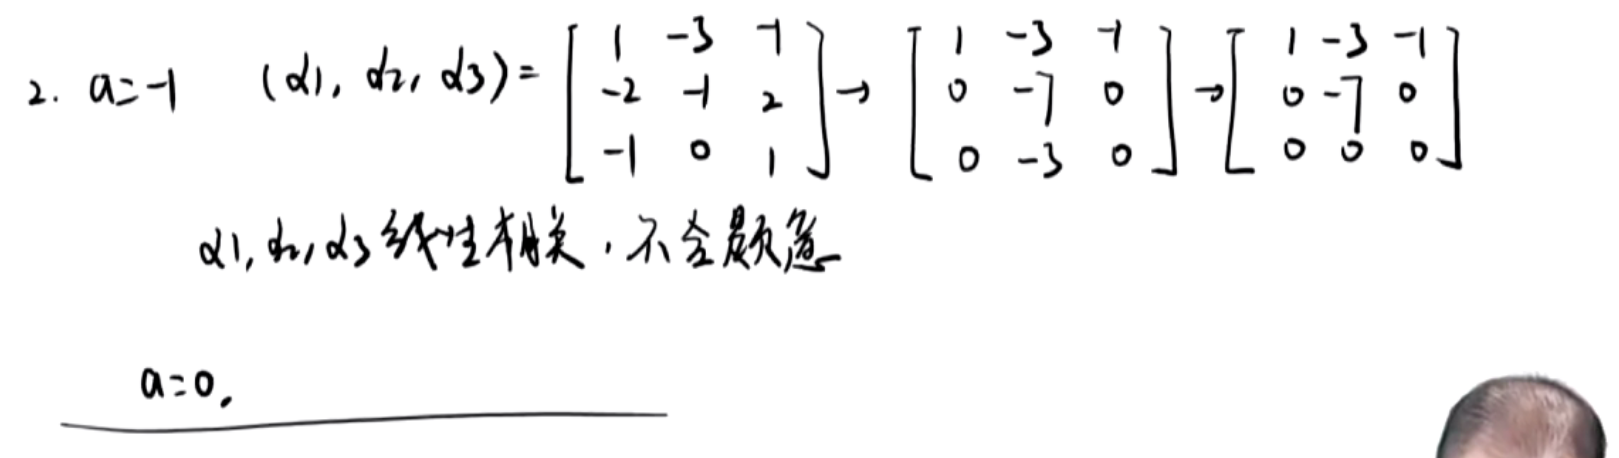 2. a=-1 (α1, α2, α3)= [ 1 -3 -1 ; -2 -1 2 ; -1 0 1 ] → [ 1 -3 -1 ; 0 -7 0 ; 0 -3 0 ] → [ 1 -3 -1 ; 0 -7 0 ; 0 0 0 ]
α1, α2, α3 线性相关, 不合题意
a=0.